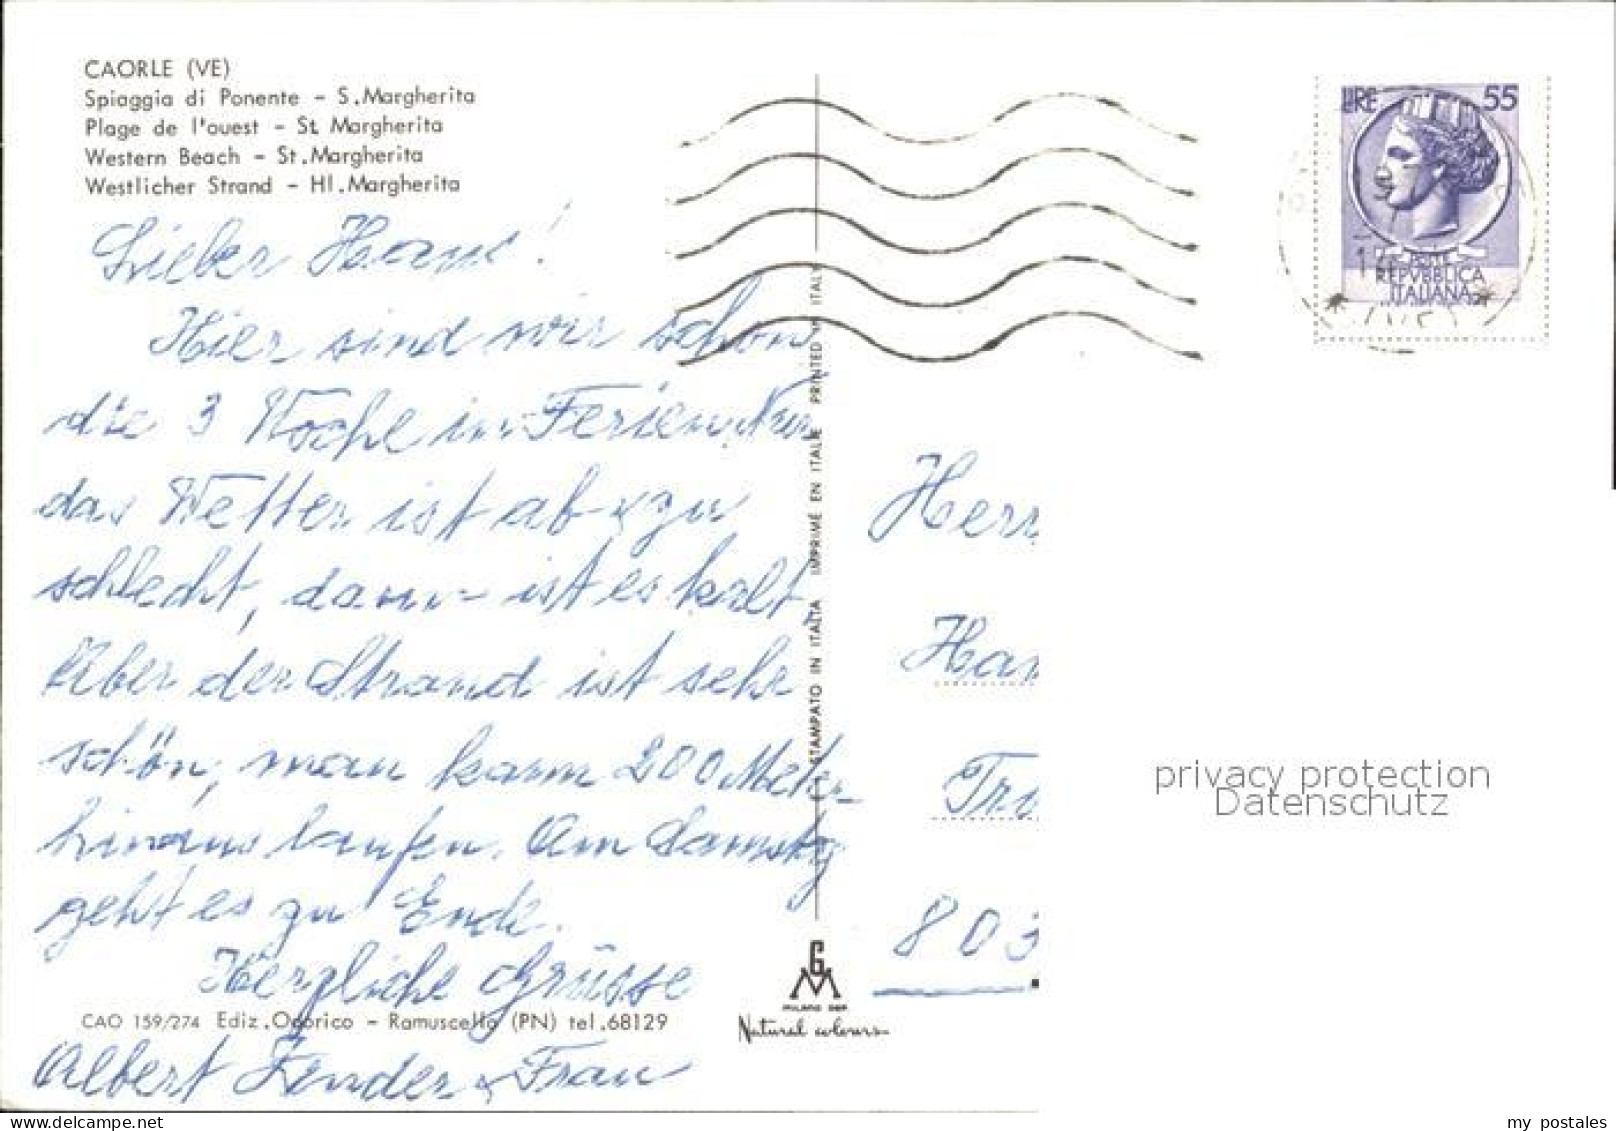 CAORLE (VE)
Spiaggia di Ponente - S. Margherita
Plage de l'ouest - St. Margherita
Western Beach - St. Margherita
Westlicher Strand - Hl. Margherita
Lieber Hans!
Hier sind wir schon
die 3 Woche in Ferien. Nur
das Wetter ist ab & zu
schlecht, dann ist es kalt,
Aber der Strand ist sehr
schön, man kann 200 Meter
hinaus laufen. Am Samstag
geht es zu Ende.
Herzliche Grüsse
Albert Zender & Frau
CAO 159/274 Ediz. Odorico - Ramuscello (PN) tel. 68129
STAMPATO IN ITALIA IMPRIMÉ EN ITALIE PRINTED IN ITALY
GM
MILANO DEP.
Natural colours
LIRE 55
POSTE
REPVBBLICA
ITALIANA
Herr
Han
Tru
803
privacy protection
Datenschutz
my postales